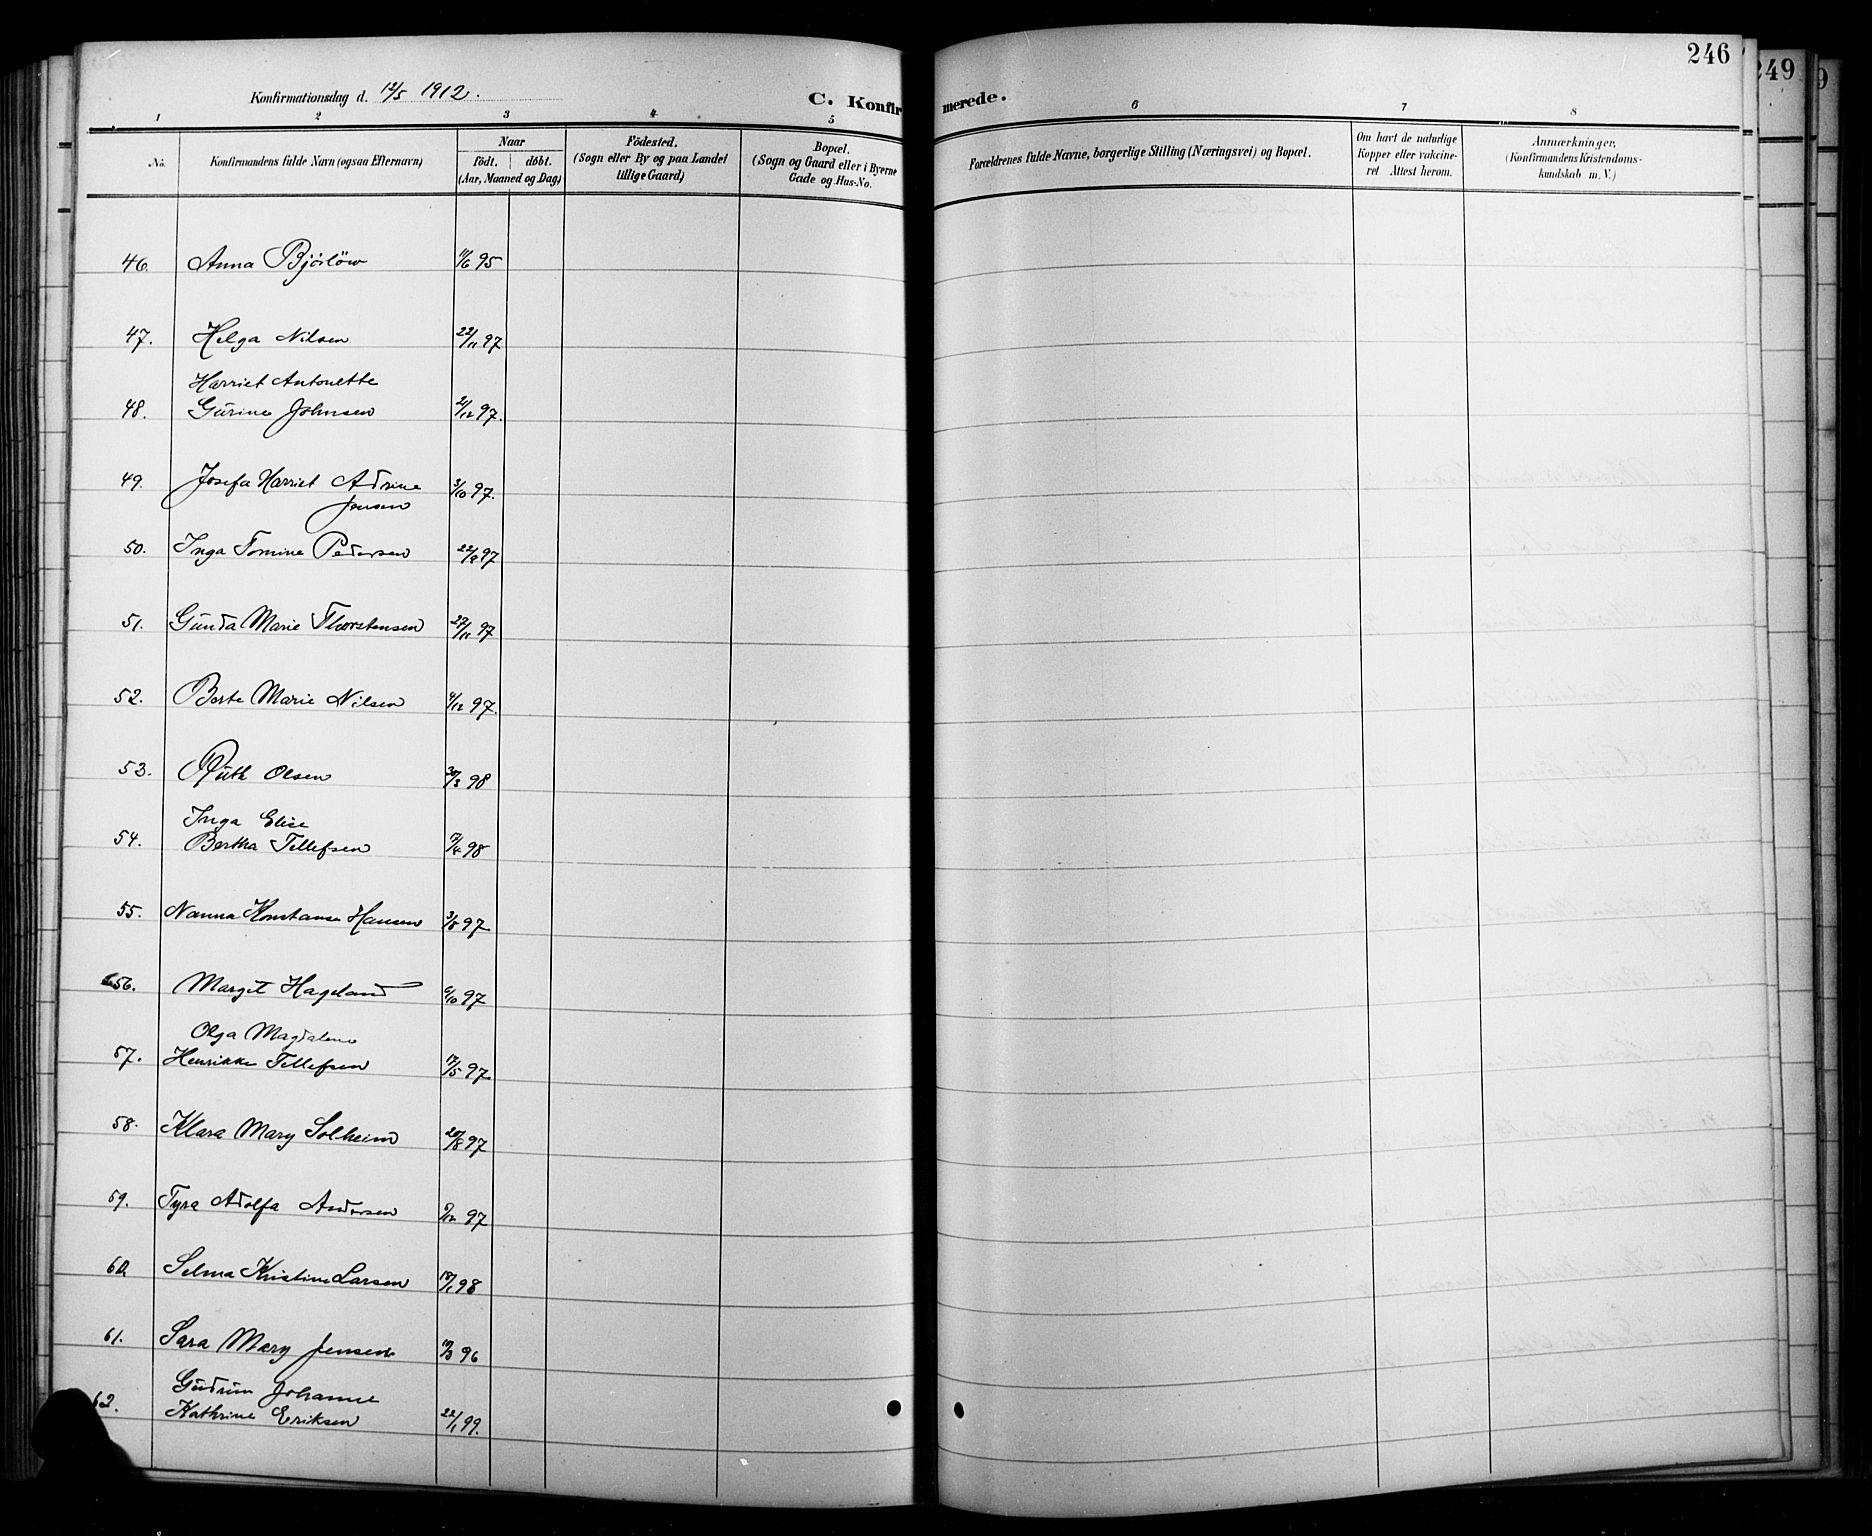 246
249
9
Konfirmationsdag d. 12/5 1912.
C. Konfirmerede.
1 2 3 4 5 6 7 8
No.
Konfirmandens fulde Navn (ogsaa Efternavn)
Naar
födt. döbt.
(Aar, Maaned og Dag)
Födested.
(Sogn eller By og paa Landet
tillige Gaard)
Bopæl.
(Sogn og Gaard eller i Byerne
Gade og Hus-No.
Forældrenes fulde Navne, borgerlige Stilling (Næringsvei) og Bopæl.
Om havt de naturlige
Kopper eller vakcine-
ret Attest herom.
Anmærkninger,
(Konfirmandens Kristendoms-
kundskab m. V.)
46. Anna Bjørlöw 11/6 95
47. Helga Nilsen 22/11 97
Harriet Antonette
48. Gurine Johnsen 2/12 97.
49. Josefa Harriet Adrine 3/10 97.
Jensen
50. Inga Tomine Pedersen 22/9 97
51. Gunda Marie Thorstensen 22/11 97
52. Berte Marie Nilsen 4/12 97.
53. Ruth Olsen 30/3 98
Inga Elise
54. Bertha Tellefsen 7/4 98
55. Nanna Konstanse Hansen 3/8 97
56. Margit Hageland 6/10 97
Olga Magdalene
57. Henrikke Tellefsen 17/5 97
58. Klara Mary Solheim 20/8 97
59. Tyra Adolfa Andersen 2/12 97
60 Selma Kristine Larsen 18/1 98
61. Sara Mary Jensen 19/3 96
Gudrun Johanne
62. Kathrine Eriksen 22/1 99.